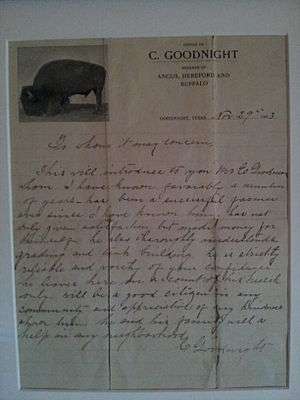 OFFICE OF
C. GOODNIGHT
BREEDER OF
ANGUS, HEREFORD AND
BUFFALO
GOODNIGHT, TEXAS, Nov. 29th
To whom it may concern,
This will introduce to you Mr
whom I have known favorably a number
of years has been a successful farmer
and since I have known him has not
only given satisfaction but made money for
himself. he also thoroughly understands
grading and tank building is a strictly
reliable and worthy of your confidence
he leaves here on account of
only will be a good citizen in any
community and appreciated of any kindness
shown him. he and his family will be
help in any neighborhood
C Goodnight